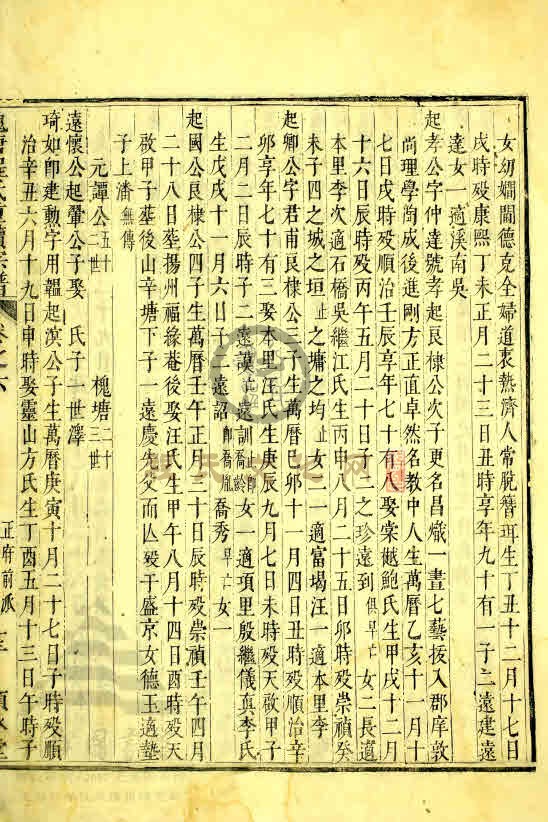 女幼嫻閫德克全婦道衷熱濟人常脫簪珥生丁丑十二月十七日
戌時殁康熙丁未正月二十三日丑時享年九十有一子二遠建遠
達女一適溪南吳
起孝公字仲達號孝起良棣公次子更名昌熾一晝七藝拔入郡庠敦
尚理學尚成後進剛方正直卓然名教中人生萬曆乙亥十一月十
七日戌時殁順治壬辰享年七十有八娶棠樾鮑氏生甲戌十二月
十六日辰時殁丙午五月二十日子二之珍遠到俱早亡女二長適
本里李次適石橋吳繼江氏生丙申 月二十五日卯時殁崇禎癸
未子四之城之垣止之墉之均止女二一適富堨汪一適本里李
起卿公字君甫良棣公三子生萬曆己卯十一月四日丑時殁順治辛
卯享年七十有三娶本里汪氏生庚辰九月七日未時殁天啟甲子
二月二日辰時子二遠謨止遠訓喬齡女一適項里殷繼儀真李氏
生戊戌十一月六日子 遠詔 喬秀早亡女一
起國公良棣公四子生萬曆壬午正月二十日辰時殁崇禎壬午四月
二十八日葬揚州福緣菴後娶汪氏生甲午八月十四日酉時殁天
啟甲子葬後山辛塘下子一遠慶先父而亡殁于盛京女德玉適塾
子上潘無傳
元譚公五十二世 槐塘二十三世
遠懷公起鞏公子娶 氏子一世澤
琦如卽建勲字用韞起溟公子生萬曆庚寅十月二十七日子時殁順
治辛丑六月十九日申時娶靈山方氏生丁酉五月十三日午時子
槐塘程氏 續宗譜 卷之六 正府前派